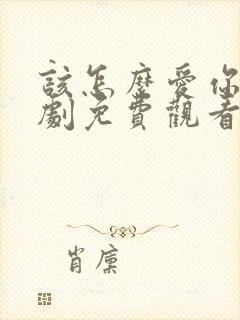 該怎麼愛你
劇免費觀看
肖廩